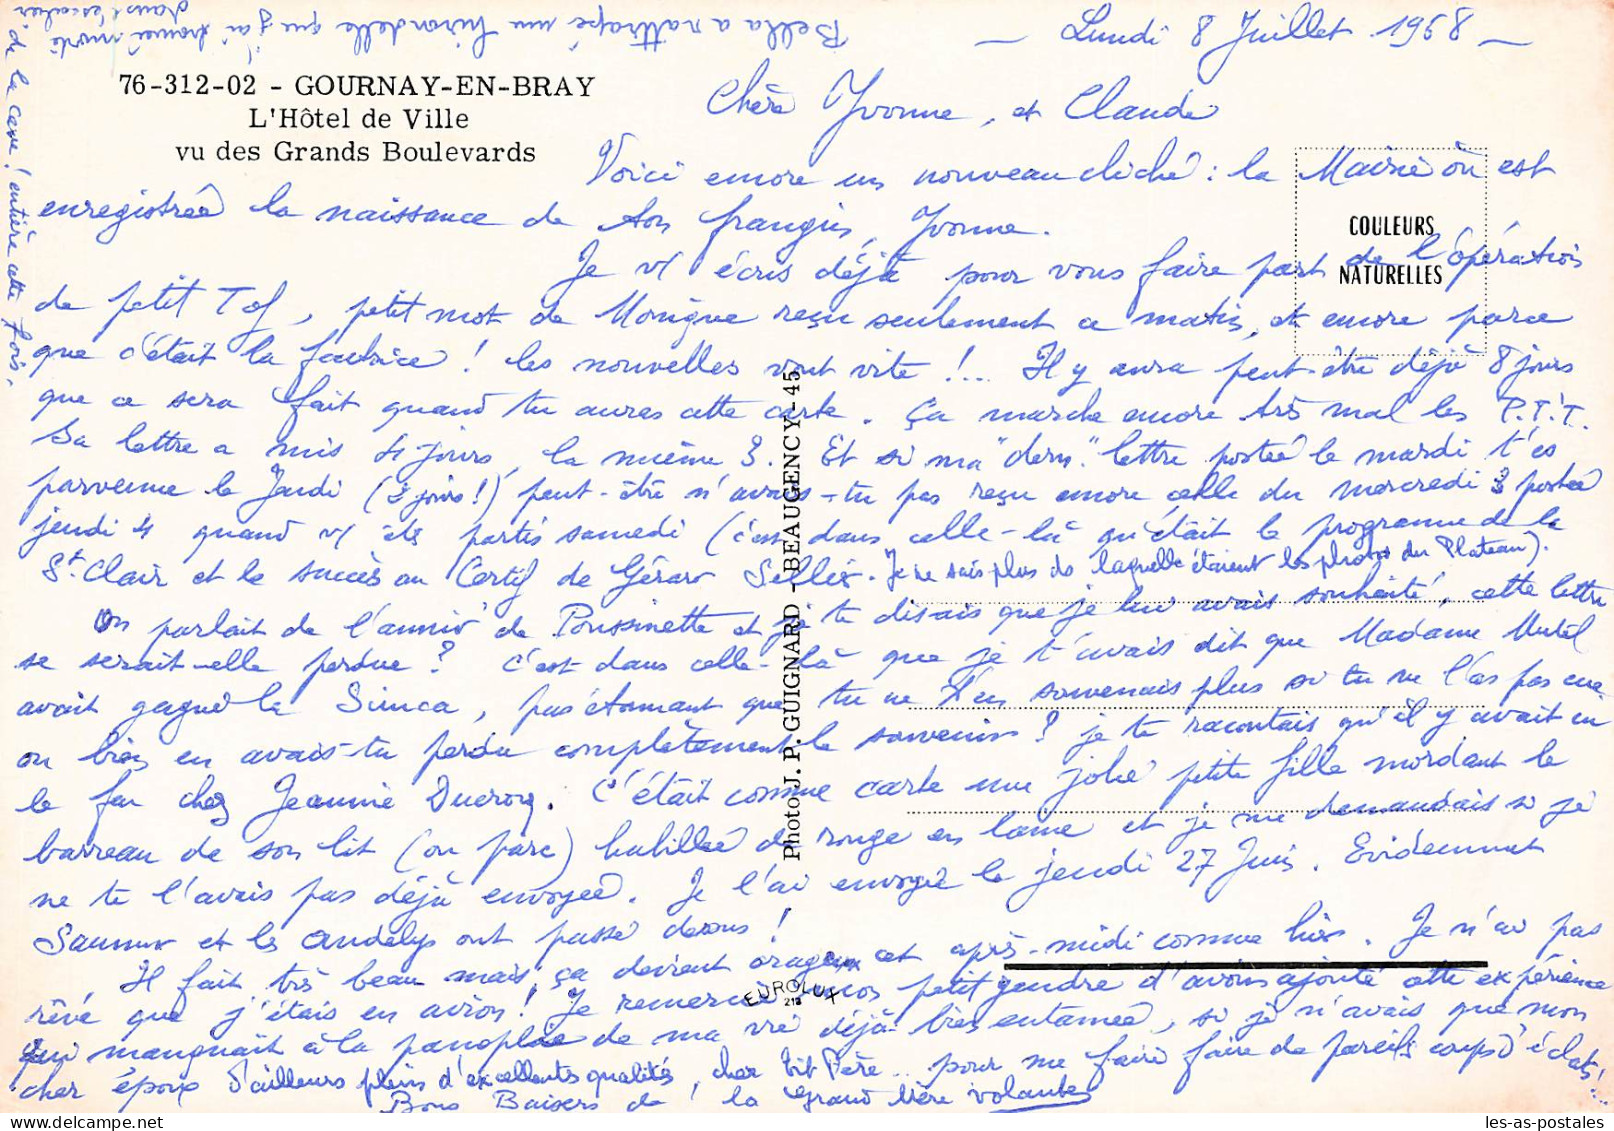 — Lundi 8 Juillet 1968 —
76-312-02 - GOURNAY-EN-BRAY
L'Hôtel de Ville
vu des Grands Boulevards
Chère Yvonne, et Claude
Voici encore un nouveau cliché : la Mairie où est
enregistrée la naissance de ton frangin, Yvonne.
Je v/ écris déjà pour vous faire part de l'opération
de petit Tof, petit mot de Monique reçu seulement ce matin, et encore parce
que c'était la factrice ! les nouvelles vont vite !... Il y aura peut-être déjà 8 jours
que ce sera fait quand tu auras cette carte. Ça marche encore très mal les P.T.T.
Sa lettre a mis 4 jours, la mienne 3. Et si ma "dern." lettre postée le mardi t'es
parvenue le Jeudi (2 jours !) peut-être n'avais-tu pas reçu encore celle du mercredi 3 postée
jeudi 4 quand v/ êtes partis samedi (c'est dans celle-là qu'était le programme de la
St Clair et le succès au Certif de Gérard Sellier. Je ne sais plus ds laquelle étaient les photos du Plateau).
On parlait de l'anniv' de Poussinette et je te disais que je lui avais souhaité, cette lettre
se serait-elle perdue ? C'est dans celle-là que je t'avais dit que Madame Mutel
avait gagné la Simca, pas étonnant que tu ne t'en souvenais plus si tu ne l'as pas eue
ou bien en avais-tu perdu complètement le souvenir ? je te racontais qu'il y avait eu
le feu chez Jeannine Ducroq. C'était comme carte une jolie petite fille mordant le
barreau de son lit (ou parc) habillée de rouge en laine et je me demandais si je
ne te l'avais pas déjà envoyée. Je l'ai envoyée le jeudi 27 Juin. Evidemment
Saumur et les Andelys ont passé dessus !
Il fait très beau mais ça devient orageux cet après-midi comme hier. Je n'ai pas
rêvé que j'étais en avion ! Je remercie mon petit gendre d'avoir ajouté cette expérience
qui manquait à la panoplie de ma vie déjà bien entamée, si je n'avais que mon
cher époux d'ailleurs plein d'excellentes qualités, cher Tit Père... pour me faire faire de pareils coups d'éclats !...
Bons Baisers de la Grand Mère volante
Bella a rattrapé une hirondelle que j'ai trouvée morte
dans l'escalier
de la cave ! entière cette fois.
COULEURS
NATURELLES
Photo J. P. GUIGNARD - BEAUGENCY-45
EUROLUX
213
les-as-postales